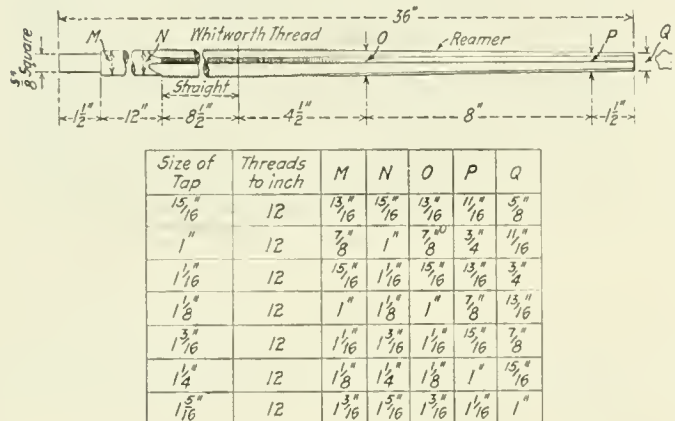 36"
M N Whitworth Thread O Reamer P Q
5/8" Square
Straight
1 1/2" 12" 8 1/2" 4 1/2" 8" 1 1/2"
Size of Tap Threads to inch M N O P Q
15/16" 12 13/16" 15/16" 13/16" 11/16" 5/8"
1" 12 7/8" 1" 7/8" 3/4" 11/16"
1 1/16" 12 15/16" 1 1/16" 15/16" 13/16" 3/4"
1 1/8" 12 1" 1 1/8" 1" 7/8" 13/16"
1 3/16" 12 1 1/16" 1 3/16" 1 1/16" 15/16" 7/8"
1 1/4" 12 1 1/8" 1 1/4" 1 1/8" 1" 15/16"
1 5/16" 12 1 3/16" 1 5/16" 1 3/16" 1 1/16" 1"